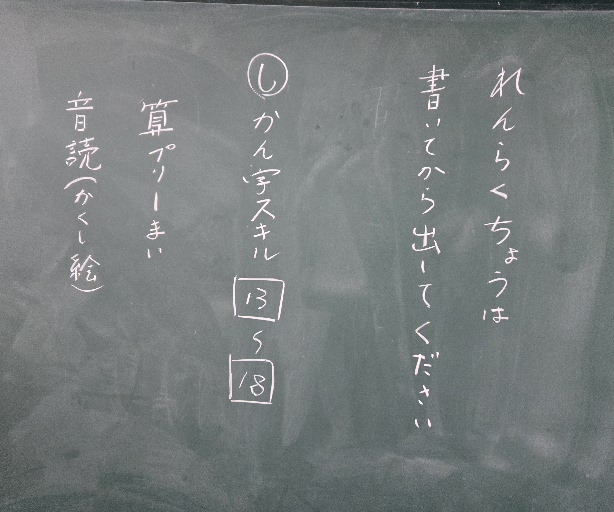 れんらくちょうは
書いてから出してください
Ⓛかん字スキル 13 〜 18
算プリ一まい
音読(かくし絵)